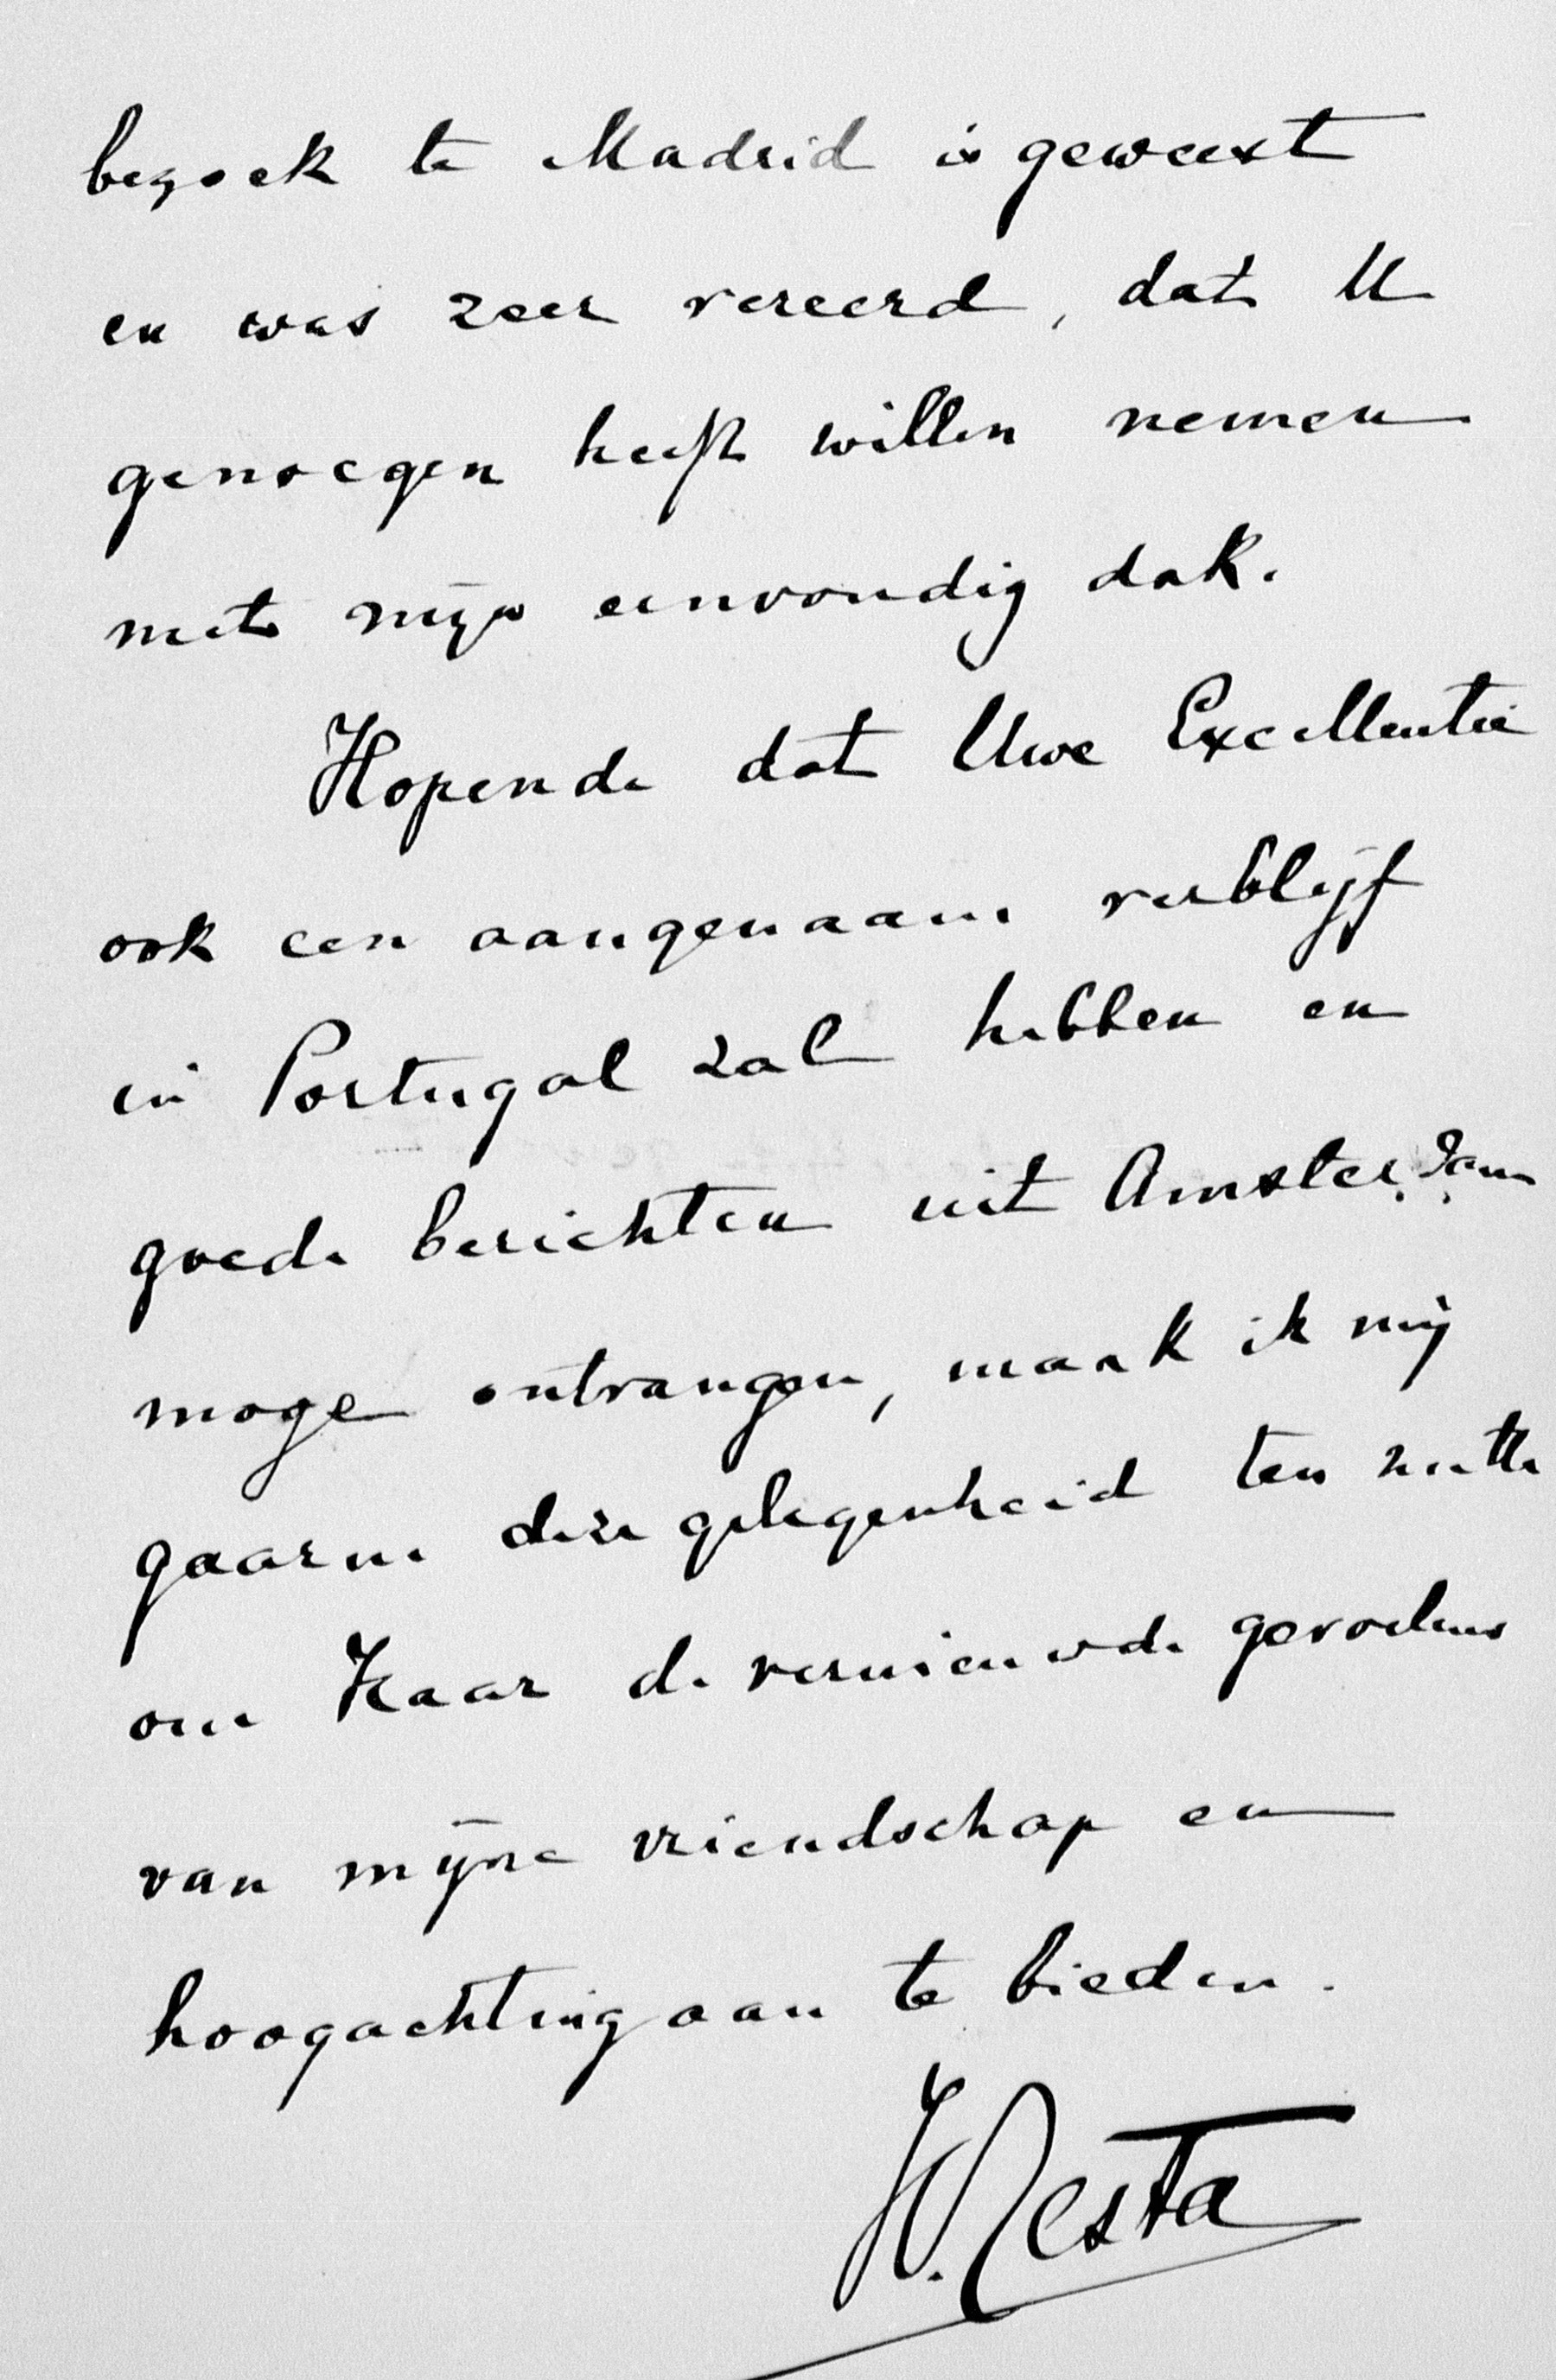 bezoek te Madrid is geweest
en was zeer vereerd, dat U
genoegen heeft willen nemen
met mijn eenvoudig dak.
Hopende dat Uwe Excellentie
ook een aangenaam verblijf
in Portugal zal hebben en
goede berichten uit Amsterdam
moge ontvangen, maak ik mij
gaarne deze gelegenheid ten nutte
om Haar de vernieuwde gevoelens
van mijne vriendschap en
hoogachting aan te bieden.